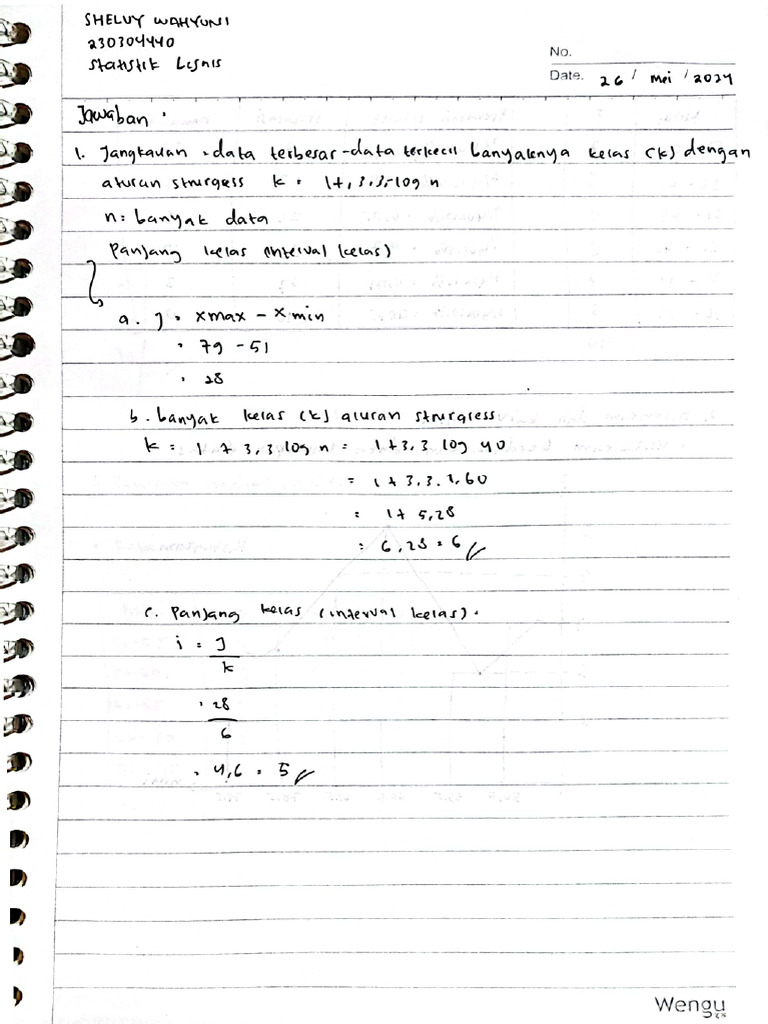 SHELVY WAHYUNI
230304440
Statistik bisnis
No.
Date. 26 / Mei / 2024
Jawaban :
1. Jangkauan = data terbesar - data terkecil banyaknya kelas (k) dengan
aturan strurgess k = 1+, 3,3, log n
n = banyak data
Panjang kelas (interval kelas)
a. J = xmax - xmin
= 79 - 51
= 28
b. banyak kelas (k) aturan strurgress
k = 1 + 3,3 log n = 1+3,3 log 40
= 1 + 3,3. 1,60
= 1+ 5,28
= 6,28 = 6
c. Panjang kelas (interval kelas).
i = J
k
= 28
6
= 4,6 = 5
Wengu